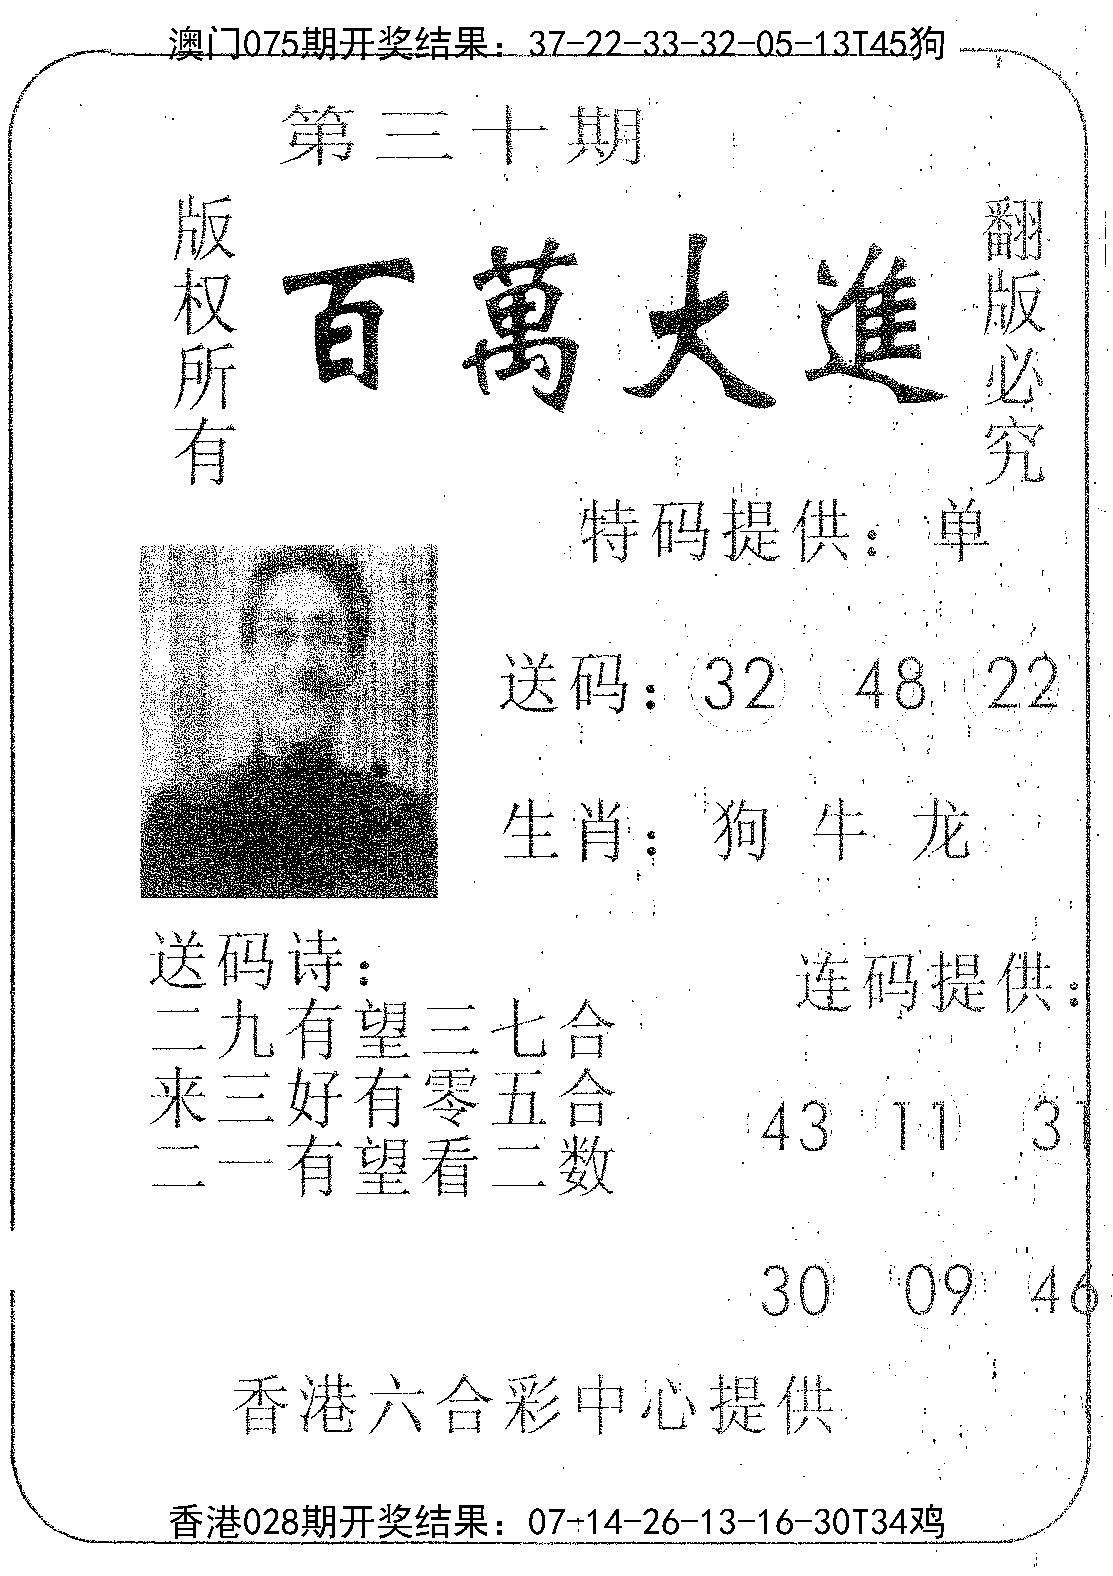 澳门075期开奖结果：37-22-33-32-05-13T45狗
第三十期
版权所有
百萬大進
翻版必究
特码提供：单
送码：32 48 22
生肖：狗 牛 龙
送码诗：
二九有望三七合
来三好有零五合
二一有望看二数
连码提供：
43 11 31
30 09 46
香港六合彩中心提供
香港028期开奖结果：07-14-26-13-16-30T34鸡